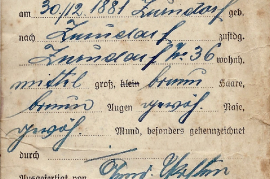 am 30/12. 1881 Zurndorf geb.
nach Zurndorf zustdg.
Zurndorf Nr 36 wohnh.
mittel groß, klein braun Haare,
braun Augen gewöh. Nase,
gewöh. Mund, besonders gekennzeichnet
durch
Ausgefertigt von